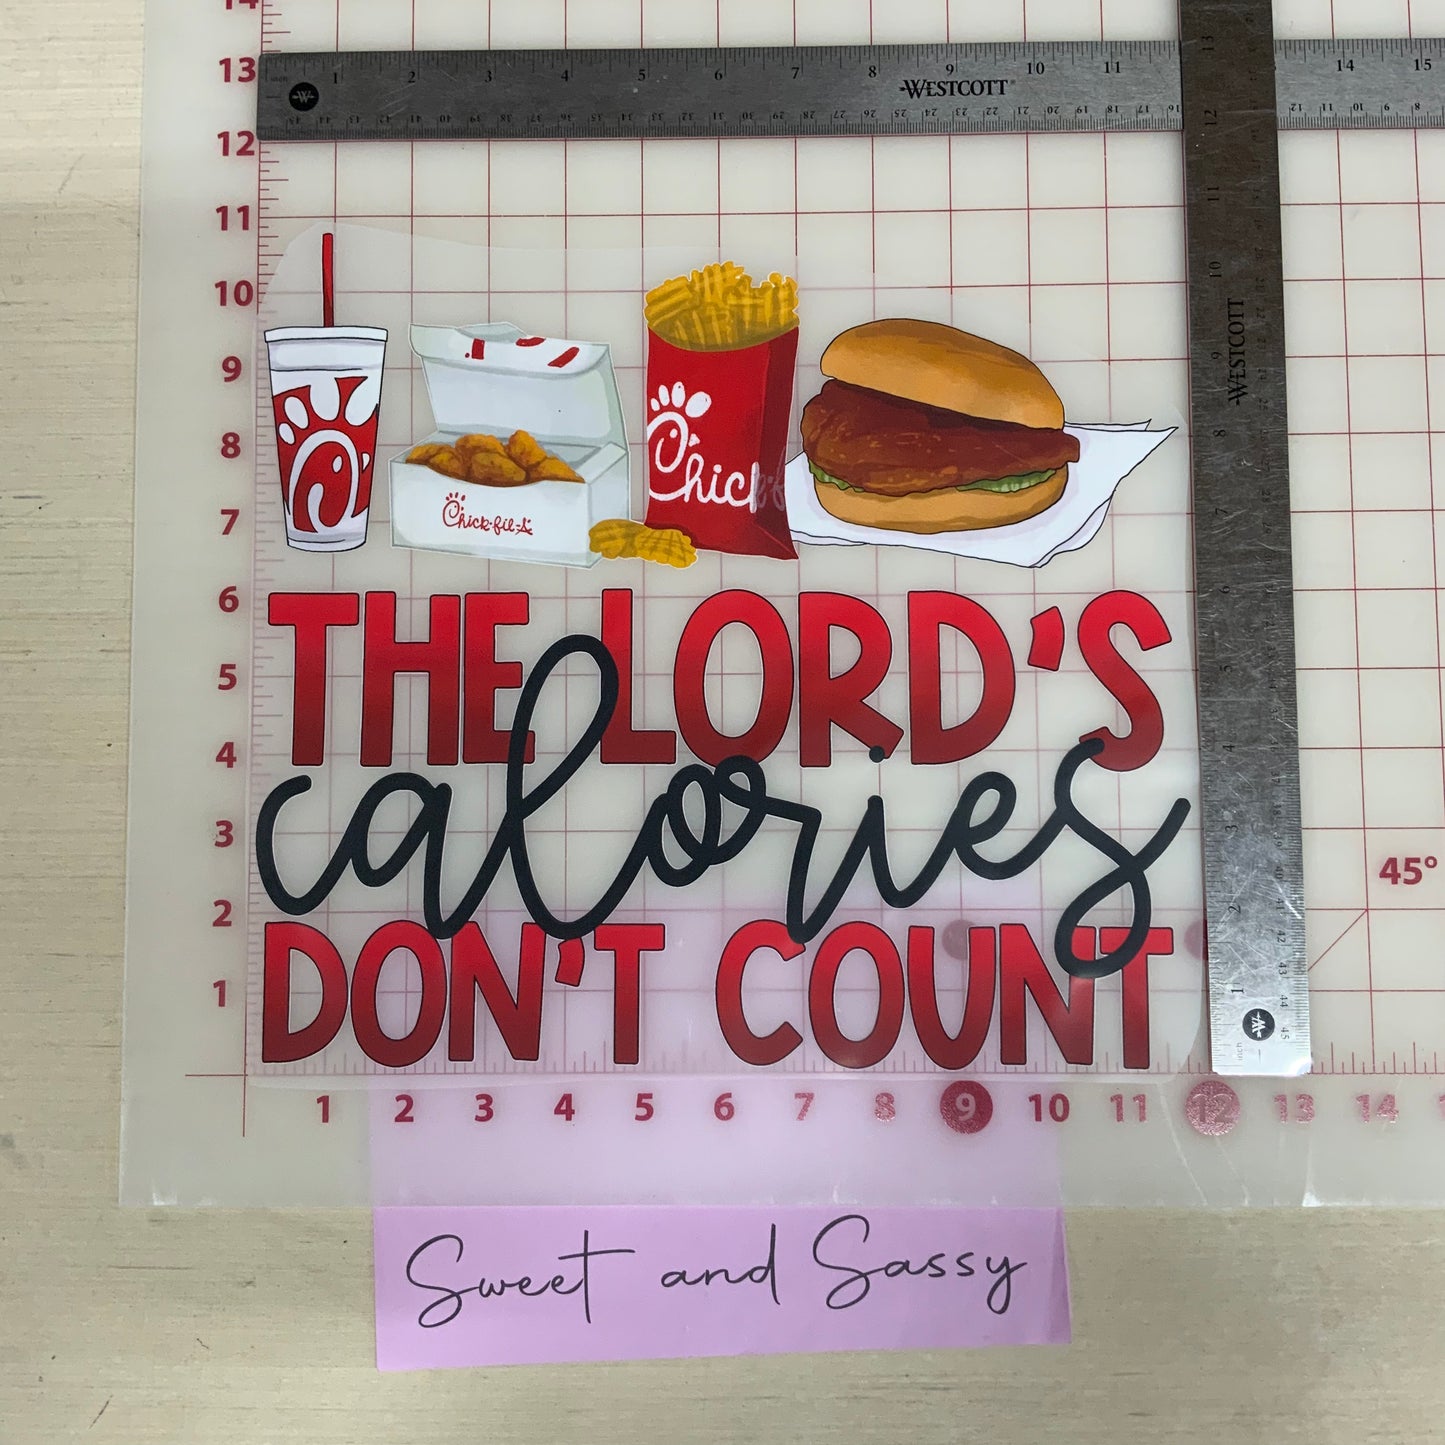 14
13
inch 1 2 3 4 5 6 7 8 9 10 11 13 14 15
WESTCOTT
12
11
10
9
8
7
6
5
4
3
2
1
WESTCOTT
Chick-fil-A
Chick-f
THE LORD'S
calories
DON'T COUNT
45°
1 2 3 4 5 6 7 8 9 10 11 12 13 14
Sweet and Sassy